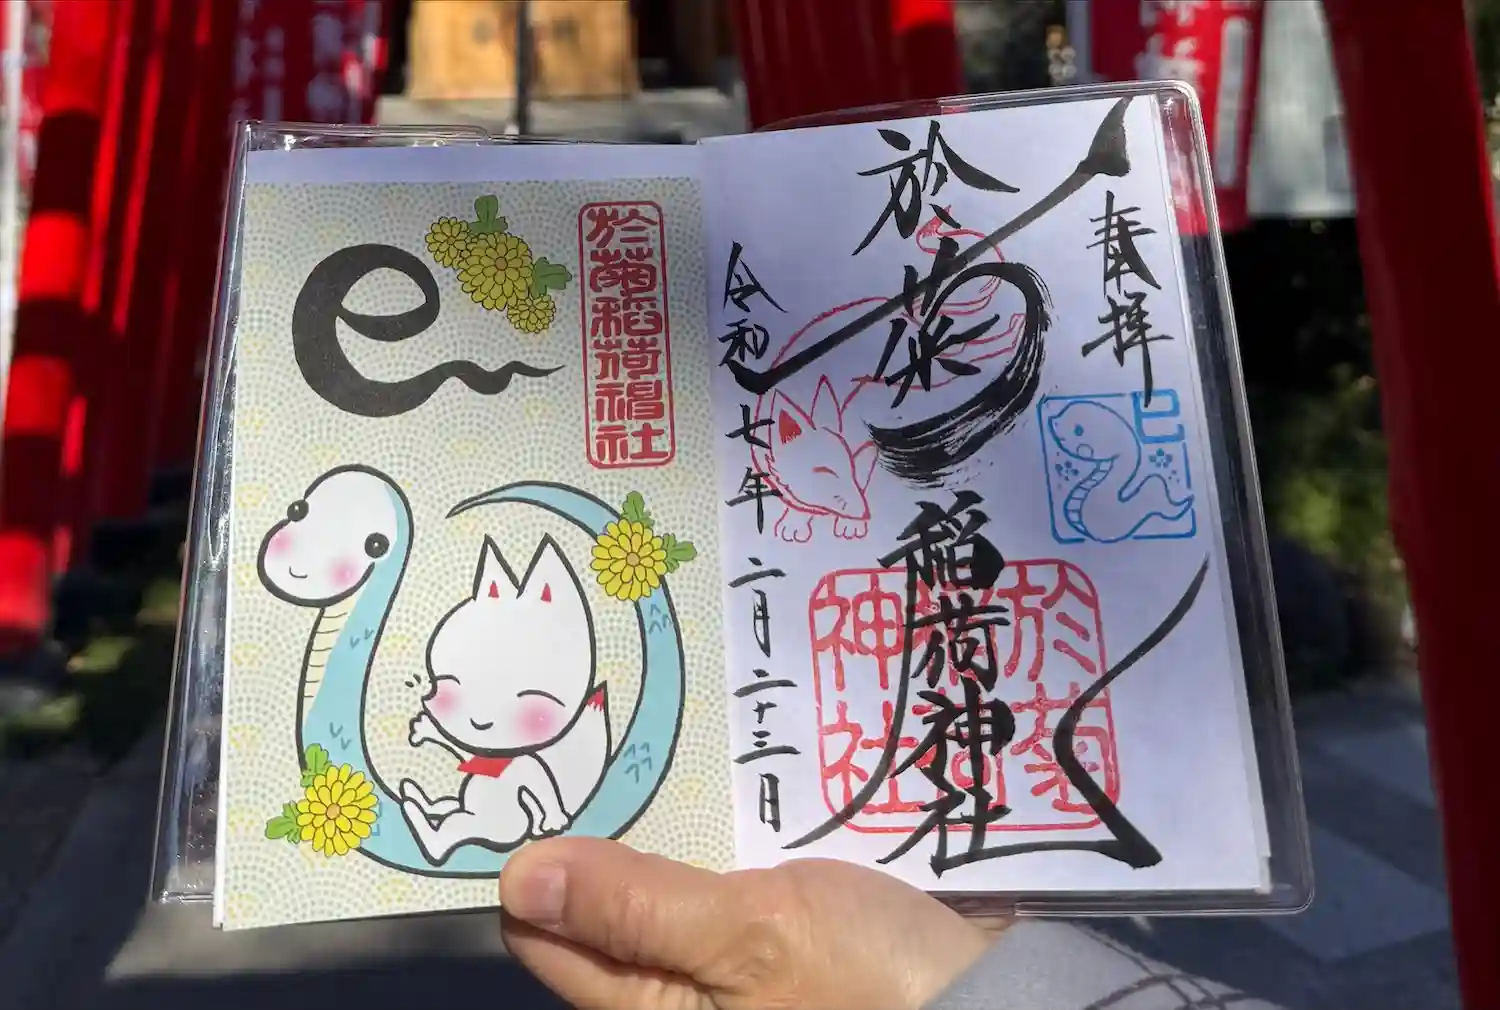 奉拝
巳
於菊稲荷神社
於菊稲荷神社
令和七年二月二十三日
於菊稲荷神社